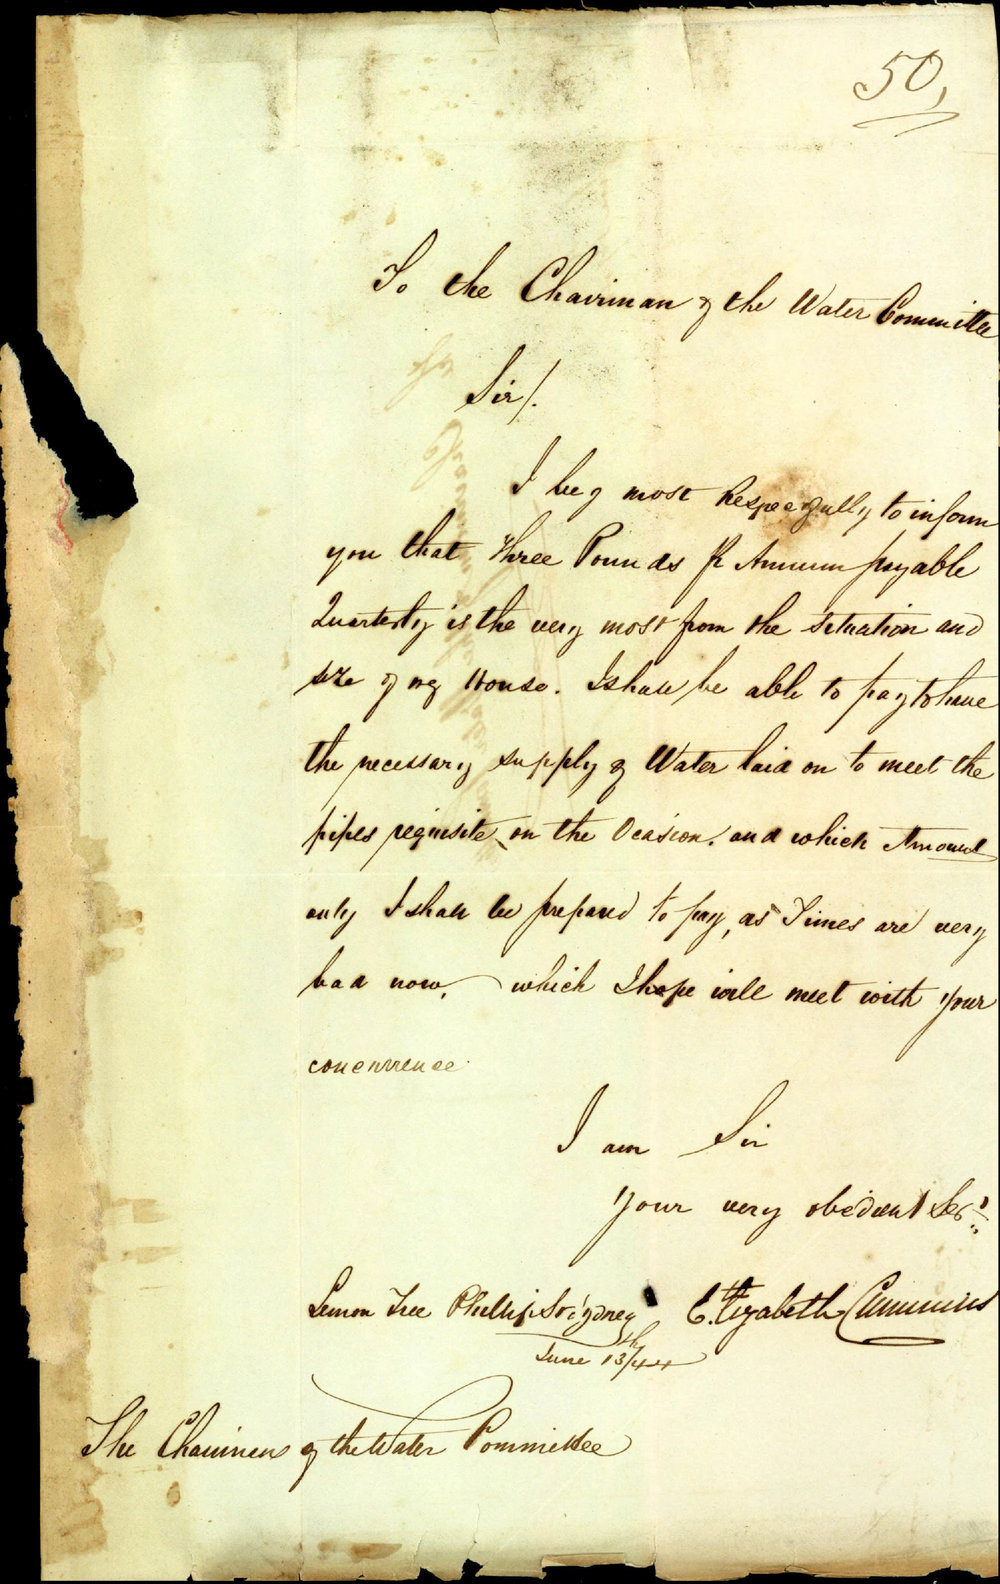 50,
To the Chairman of the Water Committee
Sir/.
I beg most Respectfully to inform
you that Three Pounds Pr Annum payable
Quarterly is the very most from the situation and
size of my House. I shall be able to pay to have
the necessary supply of Water laid on to meet the
pipes requisite on the Ocasion. and which Amount
only I shall be prepared to pay, as Times are very
bad now. which I hope will meet with your
concurrence
I am Sir
Your very obedient Sert
Lemon Tree Phillip St Sydney Elizabeth Cummins
June 13th/44
The Chairman of the Water Committee